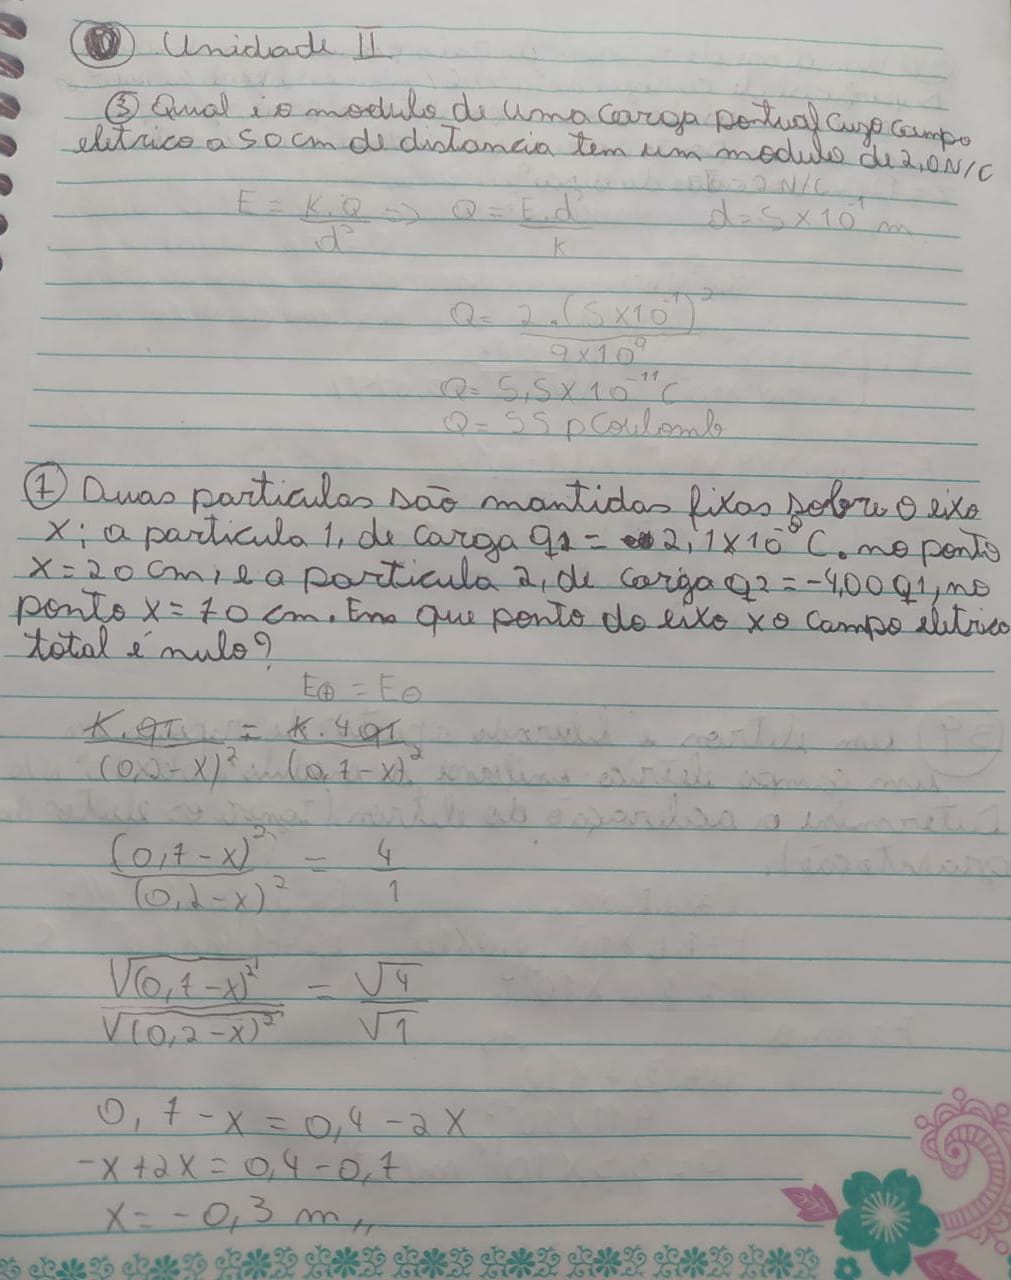 Unidade II
③ Qual é o modulo de uma carga pontual cujo campo
eletrico a 50 cm de distancia tem um modulo de 2,0 N/C
E = 2 N/C
E = K.Q/d² => Q = E.d²/K d = 5 x 10⁻¹ m
Q = 2.(5x10⁻¹)²/9x10⁹
Q = 5,5 x 10⁻¹¹ C
Q = 55 pCoulomb
⑦ Duas particulas são mantidas fixas sobre o eixo
x; a particula 1, de carga q1 = 2,1x10⁻⁸ C. no ponto
x = 20 cm, e a particula 2, de carga q2 = -4,00 q1, no
ponto x = 70 cm. Em que ponto do eixo x o campo eletrico
total é nulo?
E⊕ = E⊖
K.q1/(0,2-x)² = K.4q1/(0,7-x)²
(0,7-x)²/(0,2-x)² = 4/1
√(0,7-x)²/√(0,2-x)² = √4/√1
0,7 - x = 0,4 - 2x
-x + 2x = 0,4 - 0,7
x = -0,3 m,,